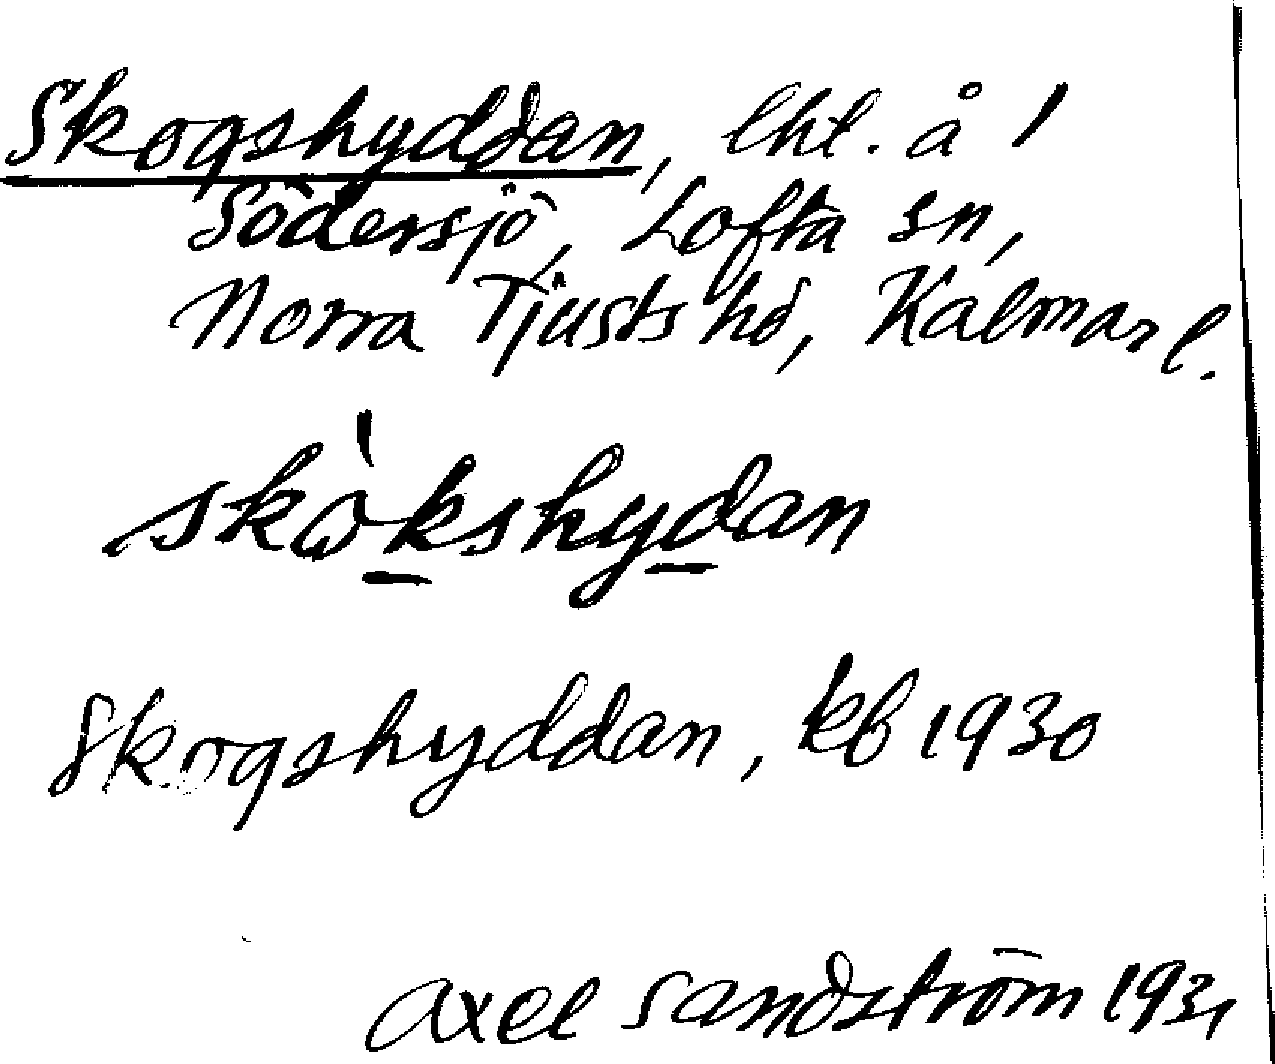 Skogshyddan, lht. å 1
Södersjö, Lofta sn,
Norra Tjusts hd, Kalmar l.
skò̀kshydan
Skogshyddan, kb 1930
Axel Sandström 1931